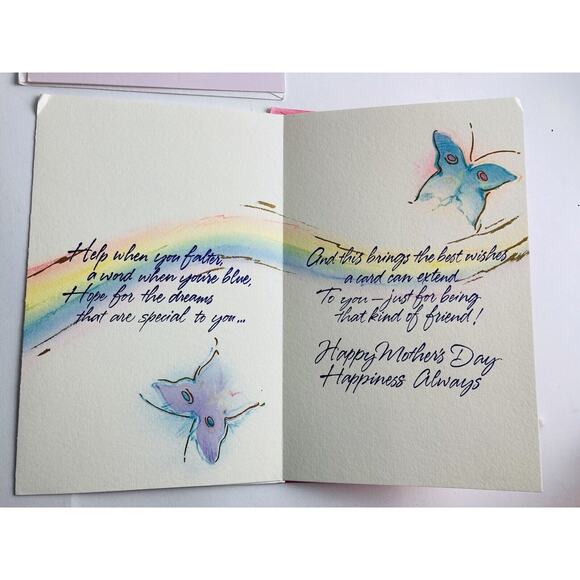 Help when you falter,
a word when you're blue,
Hope for the dreams
that are special to you...
And this brings the best wishes
a card can extend
To you — just for being
that kind of friend!
Happy Mother's Day
Happiness Always